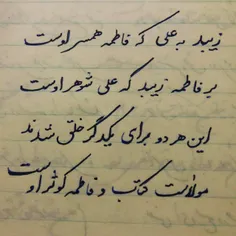 زیبد به علی که فاطمه همسر اوست
بر فاطمه زیبد که علی شوهر اوست
این هر دو برای یکدگر خلق شدند
مولاست کتاب و فاطمه کوثر اوست